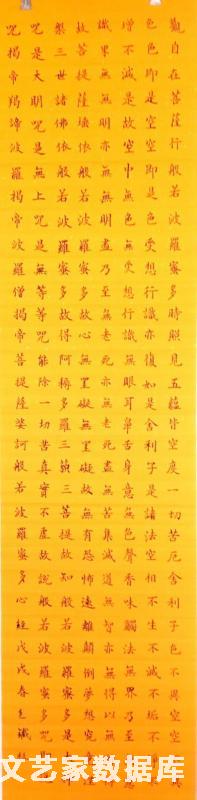 觀自在菩薩行般若波羅蜜多時照見五蘊皆空度一切苦厄舍利子色不異空空不異
色色即是空空即是色受想行識亦復如是舍利子是諸法空相不生不滅不垢不淨不
增不減是故空中無色無受想行識無眼耳鼻舌身意無色聲香味觸法無眼界乃至無意
識界無無明亦無無明盡乃至無老死亦無老死盡無苦集滅道無智亦無得以無所得
故菩提薩埵依般若波羅蜜多故心無罣礙無罣礙故無有恐怖遠離顛倒夢想究竟涅
槃三世諸佛依般若波羅蜜多故得阿耨多羅三藐三菩提故知般若波羅蜜多是大神
咒是大明咒是無上咒是無等等咒能除一切苦真實不虛故說般若波羅蜜多
咒揭帝揭諦波羅揭帝波羅僧揭帝菩提薩婆訶般若波羅蜜多心經戊戌春
文艺家数据库